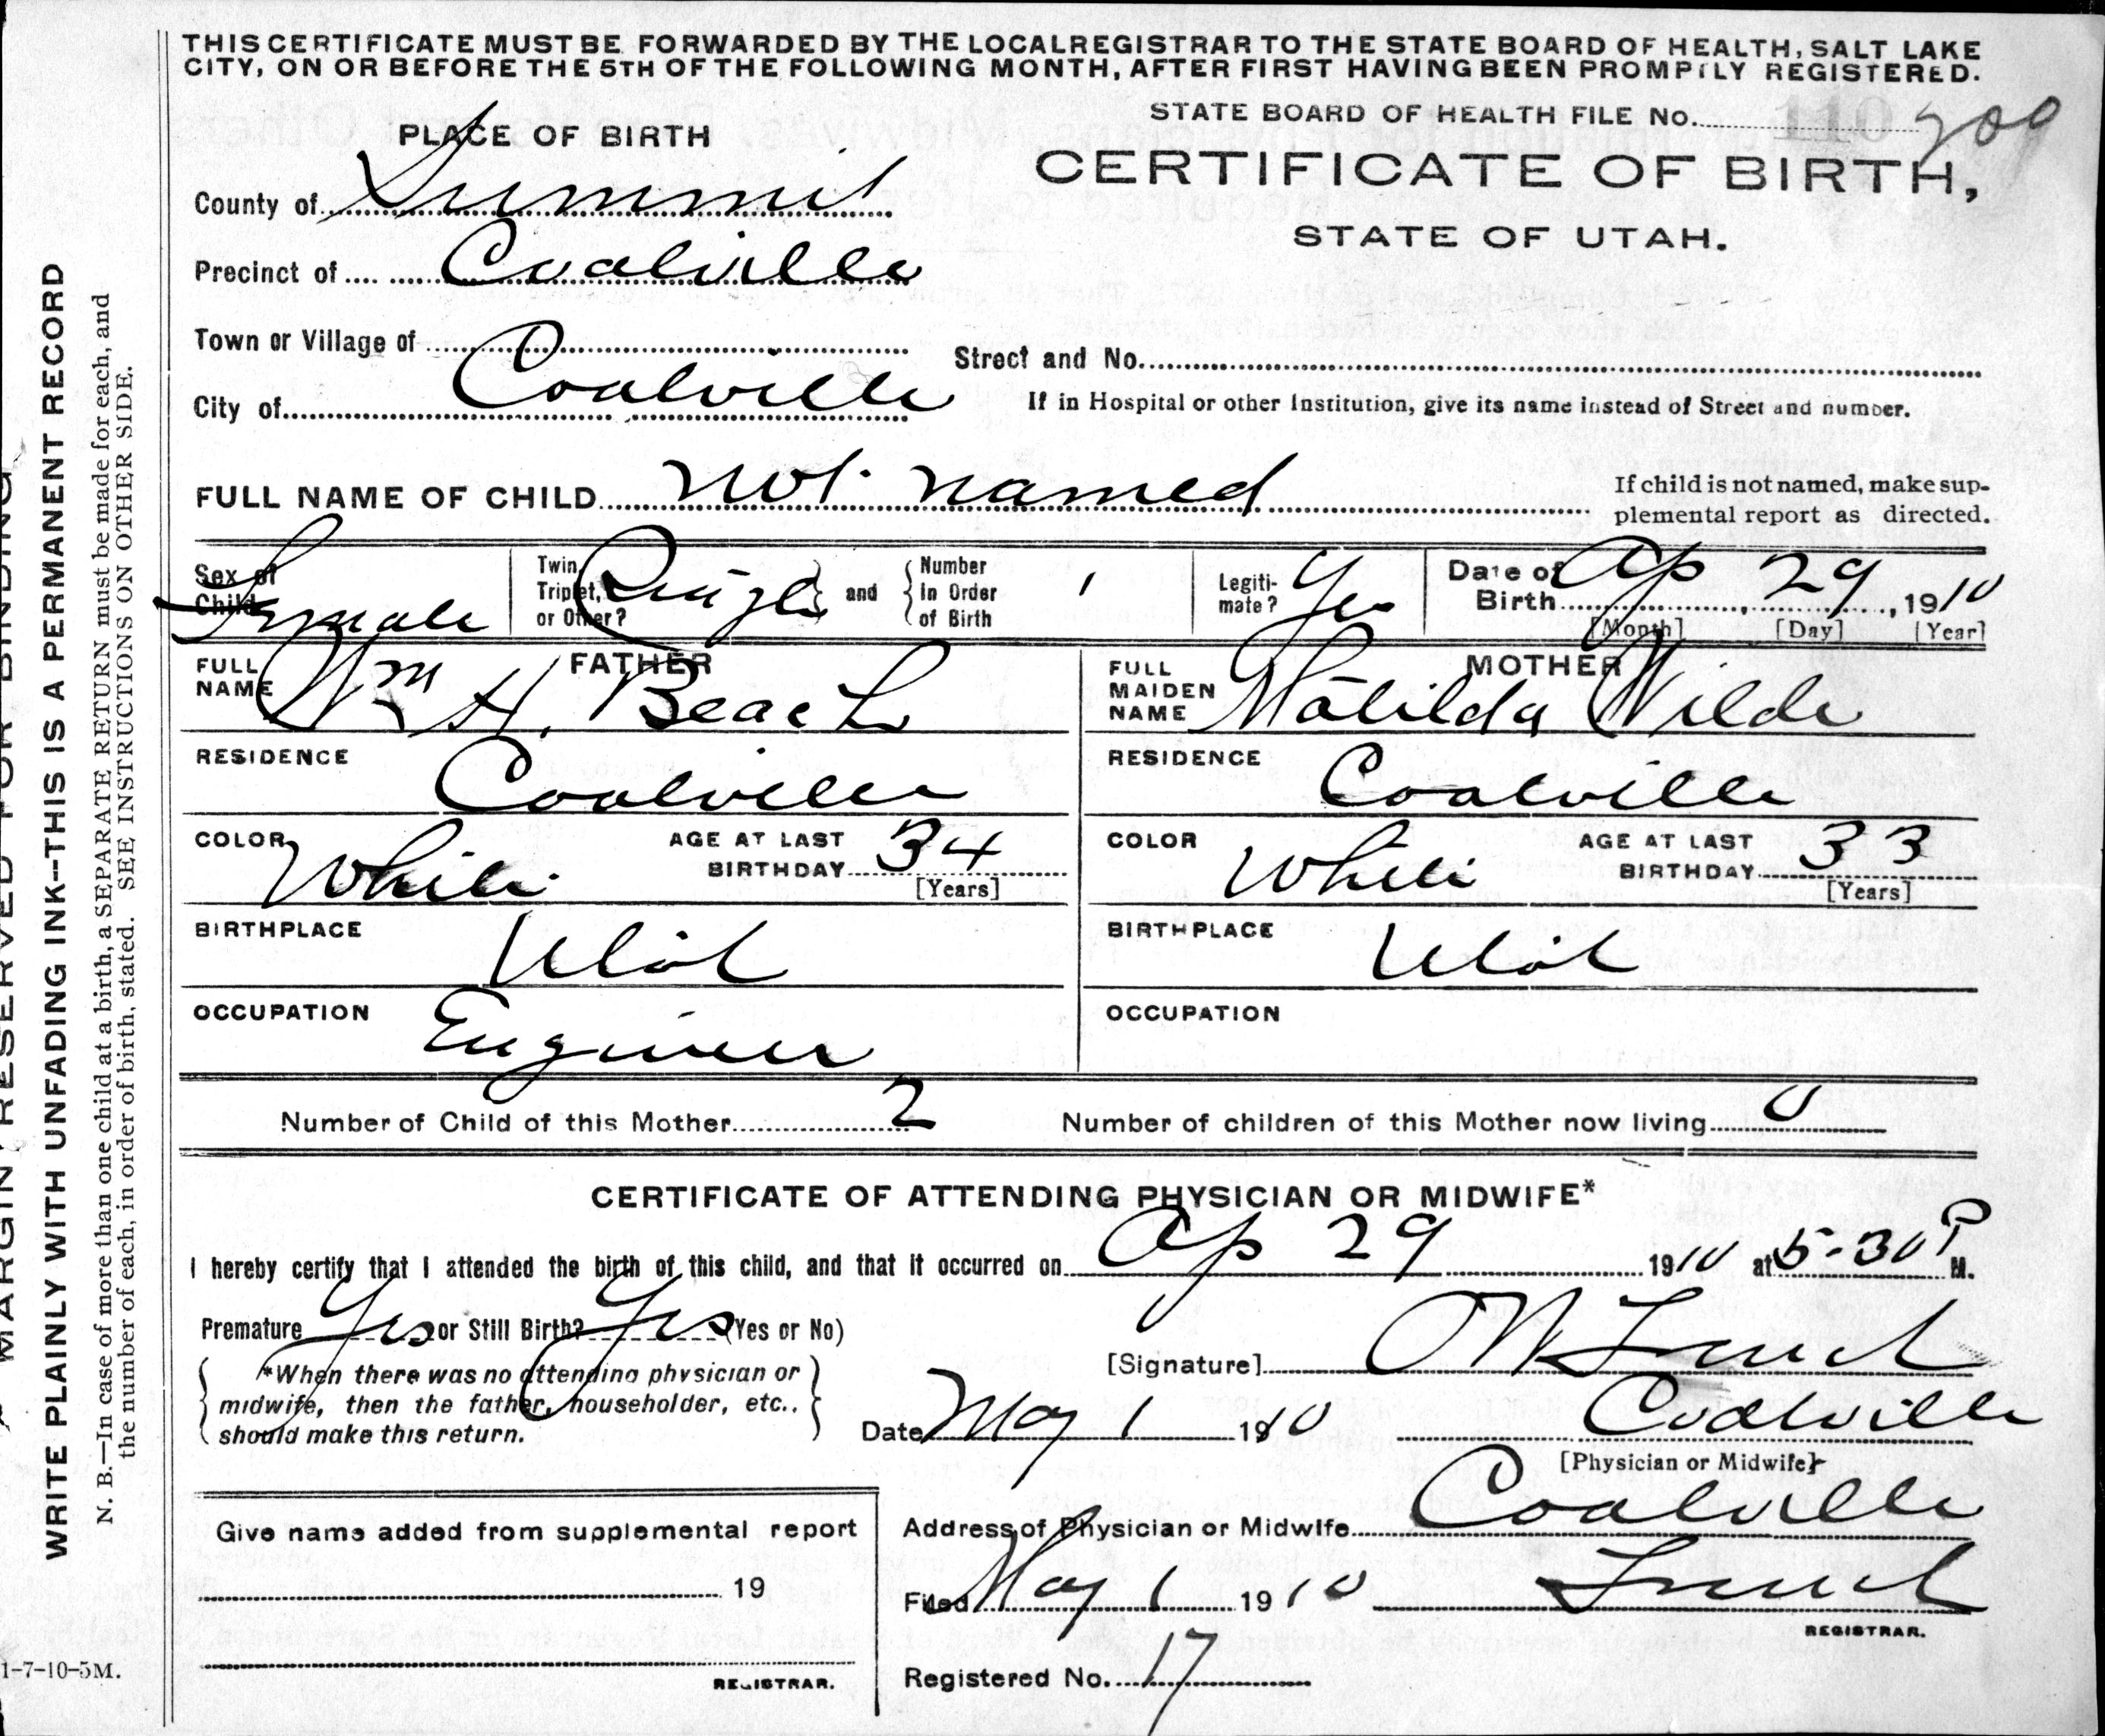 THIS CERTIFICATE MUST BE FORWARDED BY THE LOCAL REGISTRAR TO THE STATE BOARD OF HEALTH, SALT LAKE
CITY, ON OR BEFORE THE 5TH OF THE FOLLOWING MONTH, AFTER FIRST HAVING BEEN PROMPTLY REGISTERED.
STATE BOARD OF HEALTH FILE No. 110 209
PLACE OF BIRTH
CERTIFICATE OF BIRTH,
STATE OF UTAH.
County of Summit
Precinct of Coalville
Town or Village of
Street and No.
City of Coalville
If in Hospital or other Institution, give its name instead of Street and number.
FULL NAME OF CHILD not named
If child is not named, make sup-
plemental report as directed.
Sex of Child Female
Twin, Triplet, or Other? Single and Number In Order of Birth 1
Legiti-mate? Yes
Date of Birth Ap 29, 1910
[Month] [Day] [Year]
FATHER
FULL NAME Wm H. Beach
MOTHER
FULL MAIDEN NAME Matilda Wilde
RESIDENCE Coalville
RESIDENCE Coalville
COLOR White AGE AT LAST BIRTHDAY 34 [Years]
COLOR White AGE AT LAST BIRTHDAY 33 [Years]
BIRTHPLACE Utah
BIRTHPLACE Utah
OCCUPATION Engineer
OCCUPATION
Number of Child of this Mother 2 Number of children of this Mother now living 0
CERTIFICATE OF ATTENDING PHYSICIAN OR MIDWIFE*
I hereby certify that I attended the birth of this child, and that it occurred on Ap 29 1910 at 5-30 P M.
Premature Yes or Still Birth? Yes (Yes or No)
*When there was no attending physician or
midwife, then the father, householder, etc.,
should make this return.
[Signature]
Date May 1 1910 Coalville
[Physician or Midwife]
Address of Physician or Midwife Coalville
Filed May 1 1910
REGISTRAR.
Registered No. 17
Give name added from supplemental report
19
REGISTRAR.
MARGIN RESERVED FOR BINDING
WRITE PLAINLY WITH UNFADING INK--THIS IS A PERMANENT RECORD
N. B.—In case of more than one child at a birth, a SEPARATE RETURN must be made for each, and
the number of each, in order of birth, stated. SEE INSTRUCTIONS ON OTHER SIDE.
1-7-10-5M.